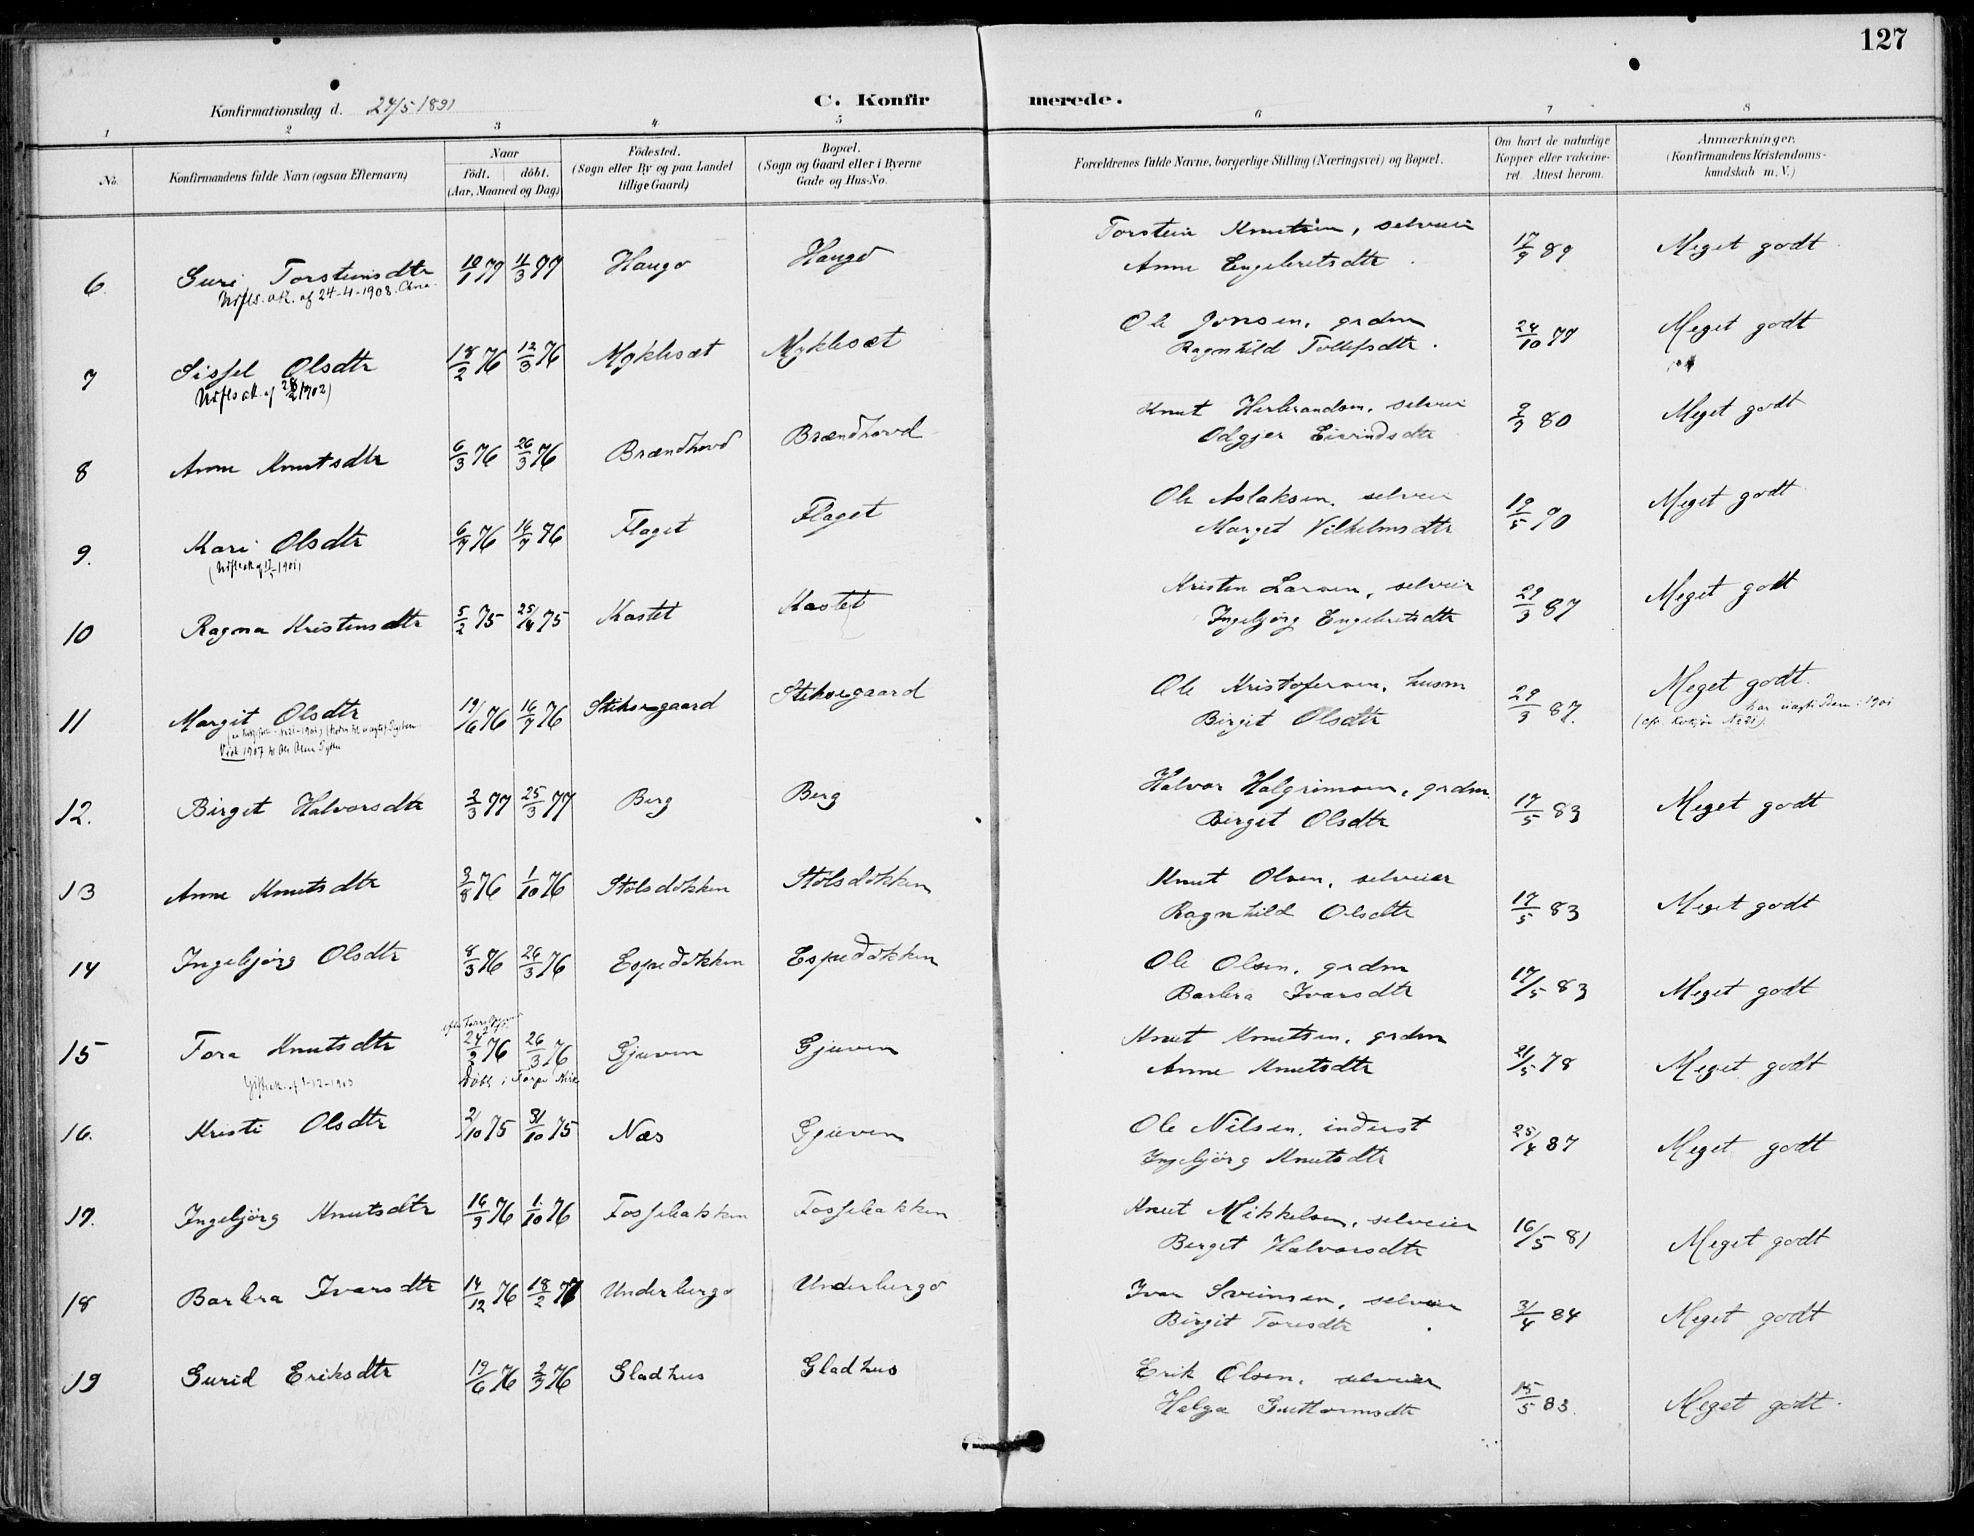 127
Konfirmationsdag d. 24/5 1891
C. Konfirmerede.
1 2 3 4 5 6 7 8
No. Konfirmandens fulde Navn (ogsaa Efternavn) Naar födt. döbt. (Aar, Maaned og Dag) Födested. (Sogn eller By og paa Landet tillige Gaard) Bopæl. (Sogn og Gaard eller i Byerne Gade og Hus-No. Forældrenes fulde Navne, borgerlige Stilling (Næringsvei) og Bopæl. Om havt de naturlige Kopper eller vakcineret. Attest herom. Anmærkninger. (Konfirmandens Kristendomskundskab m. V.)
6. Guri Torsteinsdtr 11/3 77 Haugo Haugo Torstein Knutsen, selveier 17/9 89 Meget godt
af 24-4-1908.
Anne Engebretsdtr
7 Sissel Olsdtr 18/2 76 12/3 76 Myklesæt Myklesæt Ole Jonsen, grdm 24/10 77 Meget godt
Ragnhild Tollefsdtr.
8 Anne Knutsdtr 6/3 76 26/3 76 Brændhovd Brændhovd Knut Herbrandsen, selveier 2/3 80 Meget godt
Odgjer Eivindsdtr
9. Mari Olsdtr 6/7 76 16/7 76 Flaget Flaget Ole Aslaksen, selveier 19/5 90 Meget godt
Marget Vilhelmsdtr
10 Ragna Kristensdtr 5/2 75 25/4 75 Kastet Kastet Kristen Larsen, selveier 29/3 87 Meget godt
Ingebjørg Engebretsdtr
11 Margit Olsdtr 19/6 76 16/7 76 Stiksrgaard Stiksrgaard Ole Kristofersen, husm 29/3 87. Meget godt.
Birgit Olsdtr
Viet 1907 til Ole Olsen
12. Birget Halvorsdtr 2/3 77 25/3 77 Berg Berg Halvor Halgrimsen, grdm. 17/5 83 Meget godt
Birget Olsdtr
13 Anne Knutsdtr 3/8 76 1/10 76 Stølsdokken Stølsdokken Knut Olsen, selveier 17/5 83 Meget godt
Ragnhild Olsdtr
14 Ingebjørg Olsdtr 8/3 76 26/3 76 Espedokken Espedokken Ole Olsen, grdm 17/5 83 Meget godt
Barbra Ivarsdtr
15 Tora Knutsdtr 76 26/3 76 Gjuven Gjuven Knut Knutsen, grdm 21/5 78 Meget godt
af 1-12-1903 Døbt i Torpe Kirke Anne Knutsdtr
16. Kristi Olsdtr 2/10 75 31/10 75 Næs Gjuven Ole Nilsen, inderst 25/4 87 Meget godt
Ingebjörg Knutsdtr
17. Ingebjörg Knutsdtr 16/9 76 1/10 76 Fossebakken Fossebakken Knut Mikkelsen, selveier 16/5 81 Meget godt
Berget Halvorsdtr
18 Barbra Ivarsdtr 14/12 76 18/2 77 Underbergo Underbergo Ivar Sveinsen, selveier 3/4 84 Meget godt
Birgit Toresdtr
19 Gurid Eriksdtr 19/6 76 Gladhus Gladhus Erik Olsen, selveier 15/5 83. Meget godt.
Helga Guttormsdtr